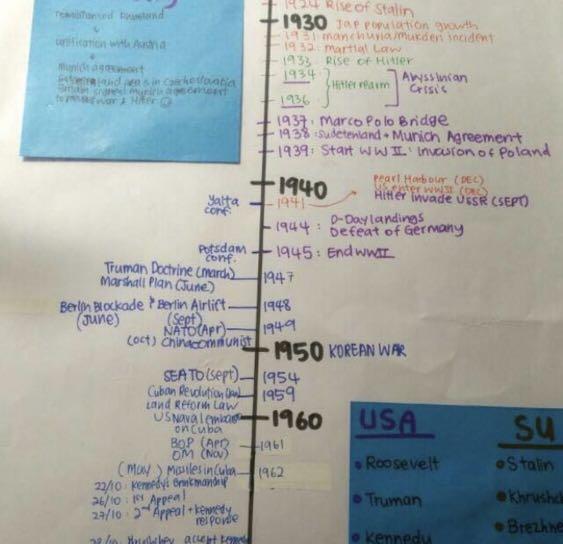 Rhineland
↓
unification with Austria
↓
Munich agreement
1924 Rise of Stalin
1930 Jap population growth
1931 manchuria/mukden incident
1932: martial Law
1933 Rise of Hitler
1934
Hitler rearm
Abyssinian
Crisis
1936
1937: Marco Polo Bridge
1938: Sudetenland + Munich Agreement
1939: Start WWII: Invasion of Poland
1940
Pearl Harbour (DEC)
US enter WWII (DEC)
Hitler Invade USSR (SEPT)
Yalta
conf.
1941
1944: D-Day landings
Defeat of Germany
Potsdam
conf.
1945: End WWII
Truman Doctrine (march)
Marshall Plan (June)
1947
Berlin Blockade & Berlin Airlift
(June) (Sept)
1948
NATO (Apr)
1949
(oct) China communist
1950 KOREAN WAR
SEATO (Sept)
1954
Cuban Revolution (Jan)
1959
Land Reform Law
US Naval
on Cuba
1960
BOP (Apr)
1961
OM (Nov)
(May) Missiles in Cuba
1962
22/10: Kennedy's Brinkmanship
26/10: 1st Appeal
27/10: 2nd Appeal + Kennedy
response
accept Kennedy
USA
• Roosevelt
• Truman
• Kennedy
SU
• Stalin
• Khrushch
• Brezhne